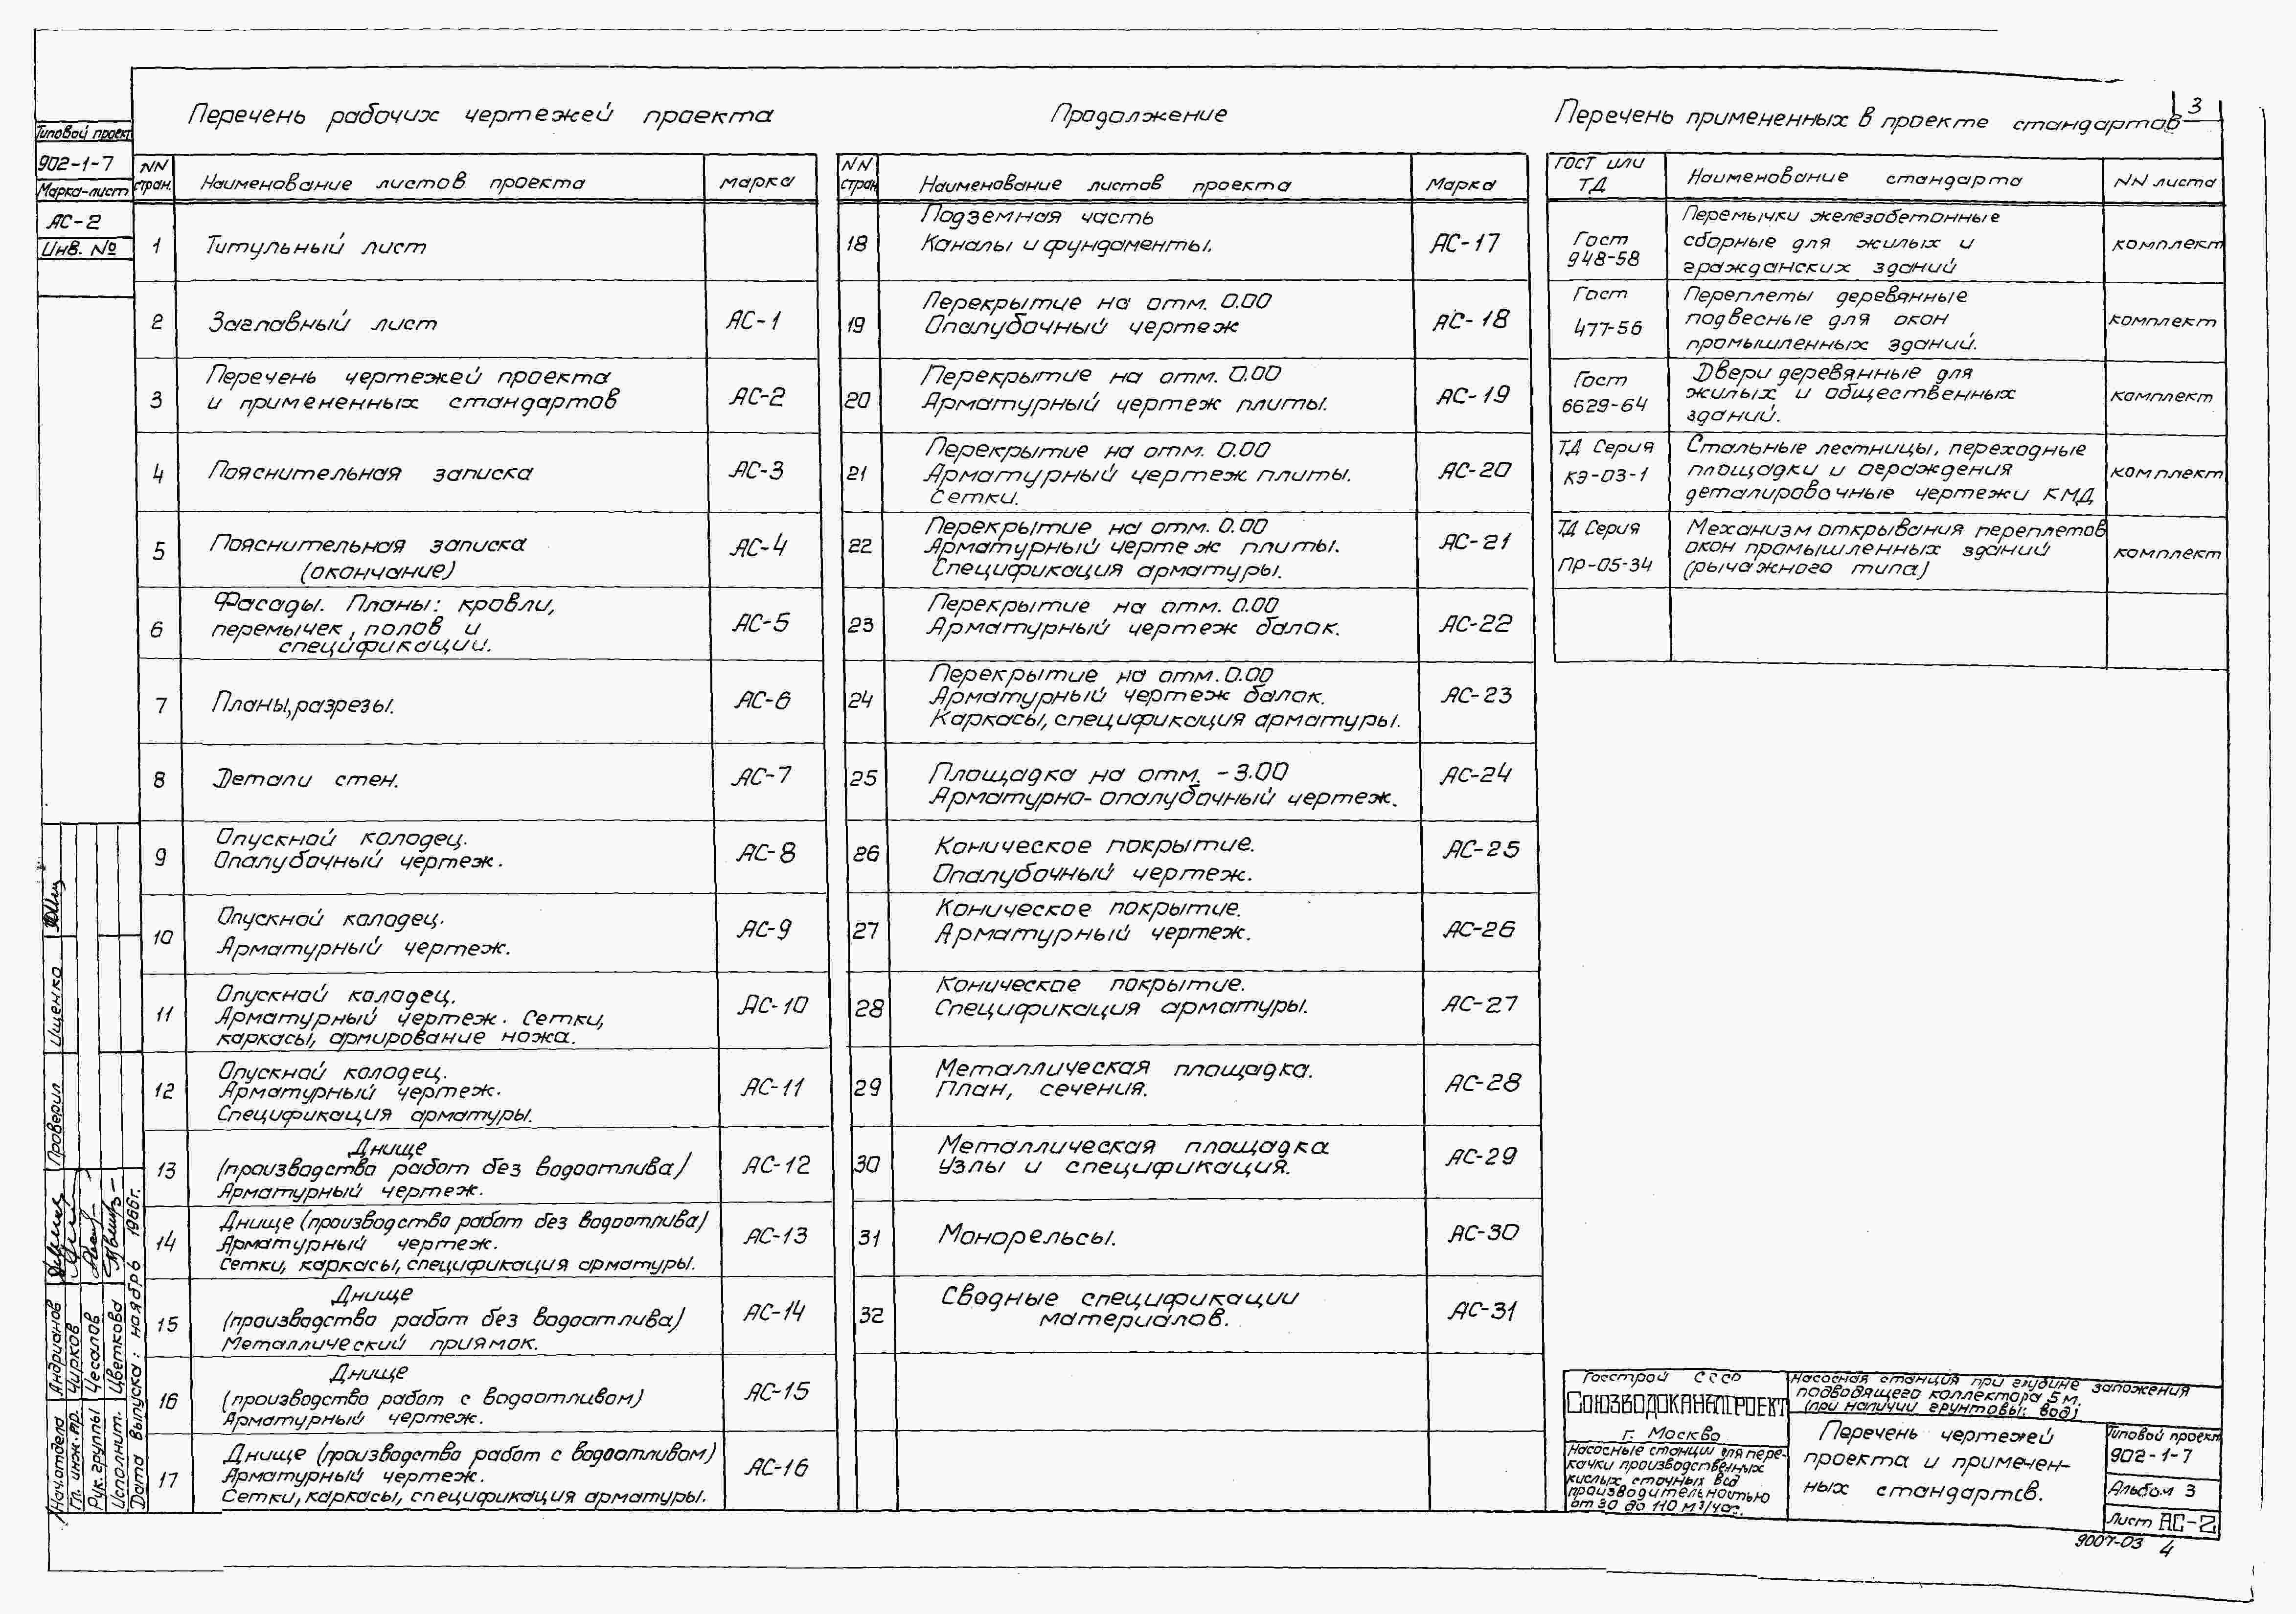 3
Перечень рабочих чертежей проекта
Продолжение
Перечень примененных в проекте стандартов
Типовой проект
902-1-7
Марка-лист
АС-2
Инв. №
NN стран.
Наименование листов проекта
марка
1
Титульный лист
2
Заглавный лист
АС-1
3
Перечень чертежей проекта
и примененных стандартов
АС-2
4
Пояснительная записка
АС-3
5
Пояснительная записка
(окончание)
АС-4
6
Фасады. Планы: кровли,
перемычек, полов и
спецификации.
АС-5
7
Планы, разрезы.
АС-6
8
Детали стен.
АС-7
9
Опускной колодец.
Опалубочный чертеж.
АС-8
10
Опускной колодец.
Арматурный чертеж.
АС-9
11
Опускной колодец.
Арматурный чертеж. Сетки,
каркасы, армирование ножа.
АС-10
12
Опускной колодец.
Арматурный чертеж.
Спецификация арматуры.
АС-11
13
Днище
(производство работ без водоотлива)
Арматурный чертеж.
АС-12
14
Днище (производство работ без водоотлива)
Арматурный чертеж.
Сетки, каркасы, спецификация арматуры.
АС-13
15
Днище
(производство работ без водоотлива)
Металлический приямок.
АС-14
16
Днище
(производство работ с водоотливом)
Арматурный чертеж.
АС-15
17
Днище (производство работ с водоотливом)
Арматурный чертеж.
Сетки, каркасы, спецификация арматуры.
АС-16
NN стран
Наименование листов проекта
Марка
18
Подземная часть
Каналы и фундаменты.
АС-17
19
Перекрытие на отм. 0.00
Опалубочный чертеж
АС-18
20
Перекрытие на отм. 0.00
Арматурный чертеж плиты.
АС-19
21
Перекрытие на отм. 0.00
Арматурный чертеж плиты.
Сетки.
АС-20
22
Перекрытие на отм. 0.00
Арматурный чертеж плиты.
Спецификация арматуры.
АС-21
23
Перекрытие на отм. 0.00
Арматурный чертеж балок.
АС-22
24
Перекрытие на отм. 0.00
Арматурный чертеж балок.
Каркасы, спецификация арматуры.
АС-23
25
Площадка на отм. -3.00
Арматурно-опалубочный чертеж.
АС-24
26
Коническое покрытие.
Опалубочный чертеж.
АС-25
27
Коническое покрытие.
Арматурный чертеж.
АС-26
28
Коническое покрытие.
Спецификация арматуры.
АС-27
29
Металлическая площадка.
План, сечения.
АС-28
30
Металлическая площадка
Узлы и спецификация.
АС-29
31
Монорельсы.
АС-30
32
Сводные спецификации
материалов.
АС-31
ГОСТ или ТД
Наименование стандарта
NN листа
Гост
948-58
Перемычки железобетонные
сборные для жилых и
гражданских зданий
комплект
Гост
477-56
Переплеты деревянные
подвесные для окон
промышленных зданий.
комплект
Гост
6629-64
Двери деревянные для
жилых и общественных
зданий.
комплект
ТД Серия
КЭ-03-1
Стальные лестницы, переходные
площадки и ограждения
деталировочные чертежи КМД
комплект
ТД Серия
Пр-05-34
Механизм открывания переплетов
окон промышленных зданий
(рычажного типа)
комплект
Проверил Ищенко
Нач. отдела Андрианов
Гл. инж. пр. Чирков
Рук. группы Чесалов
Исполнит. Цветкова
Дата выпуска: ноябрь 1966г.
Госстрой СССР
СОЮЗВОДОКАНАЛПРОЕКТ
г. Москва
Насосные станции для пере-
качки производственных
кислых сточных вод
производительностью
от 30 до 110 м³/час.
Насосная станция при глубине заложения
подводящего коллектора 5м.
(при наличии грунтовых вод)
Перечень чертежей
проекта и применен-
ных стандартов.
Типовой проект
902-1-7
Альбом 3
Лист АС-2
9007-03 4